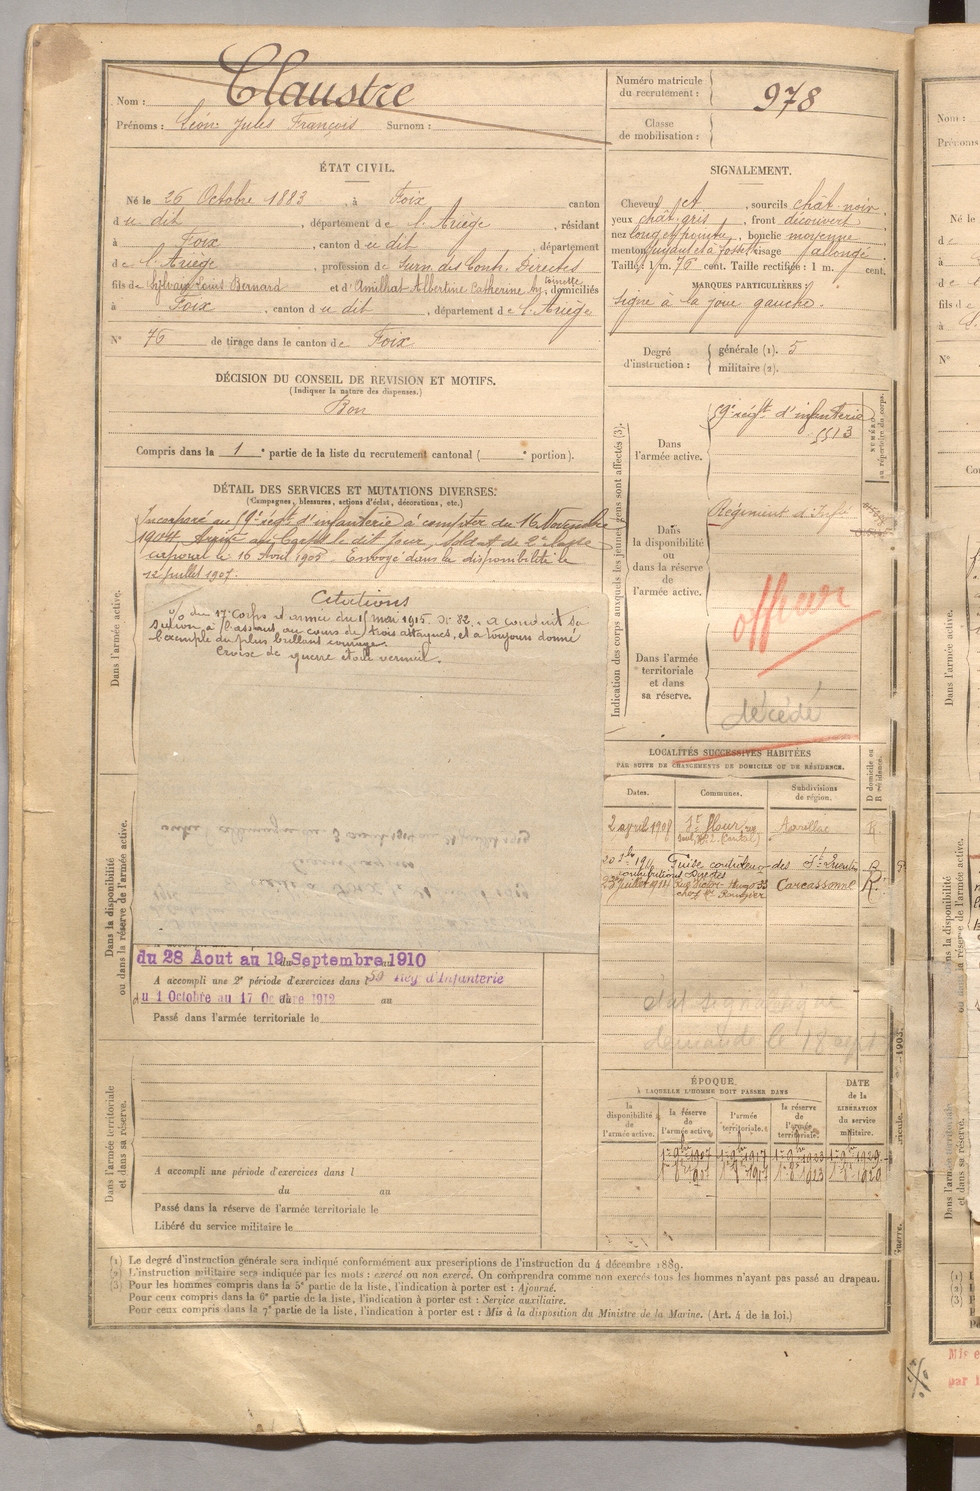 Nom : Claustre
Prénoms : Léon Jules François Surnom :
Numéro matricule du recrutement : 978
Classe de mobilisation :
ÉTAT CIVIL.
Né le 26 Octobre 1883, à Foix canton
du dit, département de l'Ariège, résidant
à Foix, canton du dit, département
de l'Ariège, profession de Surn. des Contr. Directes
fils de Sylvain Louis Bernard et d'Amilhat Albertine Catherine, domiciliés
à Foix, canton du dit, département de l'Ariège
N° 76 de tirage dans le canton de Foix
DÉCISION DU CONSEIL DE REVISION ET MOTIFS.
(Indiquer la nature des dispenses.)
Bon
Compris dans la 1e partie de la liste du recrutement cantonal ( e portion).
SIGNALEMENT.
Cheveux, sourcils chat. noir
yeux chat. gris, front découvert
nez long et pointu, bouche moyenne
menton fuyant et à fossette visage allongé
Taille : 1 m. 76 cent. Taille rectifiée : 1 m. cent.
MARQUES PARTICULIÈRES :
Signe à la joue gauche.
Degré d'instruction : générale (1). 5
militaire (2).
DÉTAIL DES SERVICES ET MUTATIONS DIVERSES.
(Campagnes, blessures, actions d'éclat, décorations, etc.)
Dans l'armée active.
Incorporé au 59e régt d'infanterie à compter du 16 Novembre
1904. Arrivé au Corps le dit jour, Soldat de 2e classe
caporal le 16 Avril 1905. Envoyé dans la disponibilité le
12 juillet 1907.
Citations
o/o du 17e Corps d'armée du 15 mai 1915. N° 82. a conduit sa
section à l'assaut au cours de trois attaques, et a toujours donné
l'exemple du plus brillant courage.
Croix de guerre étoile vermeil.
Dans la disponibilité ou dans la réserve de l'armée active.
du 28 Aout au 19 Septembre 1910
A accompli une 2e période d'exercices dans l 59 Rég d'Infanterie
du 1 Octobre au 17 Octobre 1912 au
Passé dans l'armée territoriale le
Dans l'armée territoriale et dans sa réserve.
A accompli une période d'exercices dans l
du au
Passé dans la réserve de l'armée territoriale le
Libéré du service militaire le
Indication des corps auxquels les jeunes gens sont affectés (3).
NUMÉRO au répertoire du corps.
Dans l'armée active.
59e régt d'infanterie
5513
Dans la disponibilité ou dans la réserve de l'armée active.
Régiment d'Infie
officier
Dans l'armée territoriale et dans sa réserve.
décédé
LOCALITÉS SUCCESSIVES HABITÉES
PAR SUITE DE CHANGEMENTS DE DOMICILE OU DE RÉSIDENCE.
Dates. Communes. Subdivisions de région. D domicile ou R résidence.
2 avril 1908 St flour (Cantal) Aurillac R.
1911 Guise contrôleur des contributions directes St Quentin R
23 juillet 1914 Rue Victor-Hugo 33 chez Mr Rouquier Carcassonne R.
demandé le 18
ÉPOQUE
À LAQUELLE L'HOMME DOIT PASSER DANS
DATE de la LIBÉRATION du service militaire.
la disponibilité de l'armée active.
la réserve de l'armée active.
l'armée territoriale.
la réserve de l'armée territoriale.
(1) Le degré d'instruction générale sera indiqué conformément aux prescriptions de l'instruction du 4 décembre 1889.
(2) L'instruction militaire sera indiquée par les mots : exercé ou non exercé. On comprendra comme non exercés tous les hommes n'ayant pas passé au drapeau.
(3) Pour les hommes compris dans la 5e partie de la liste, l'indication à porter est : Ajourné.
Pour ceux compris dans la 6e partie de la liste, l'indication à porter est : Service auxiliaire.
Pour ceux compris dans la 7e partie de la liste, l'indication à porter est : Mis à la disposition du Ministre de la Marine. (Art. 4 de la loi.)